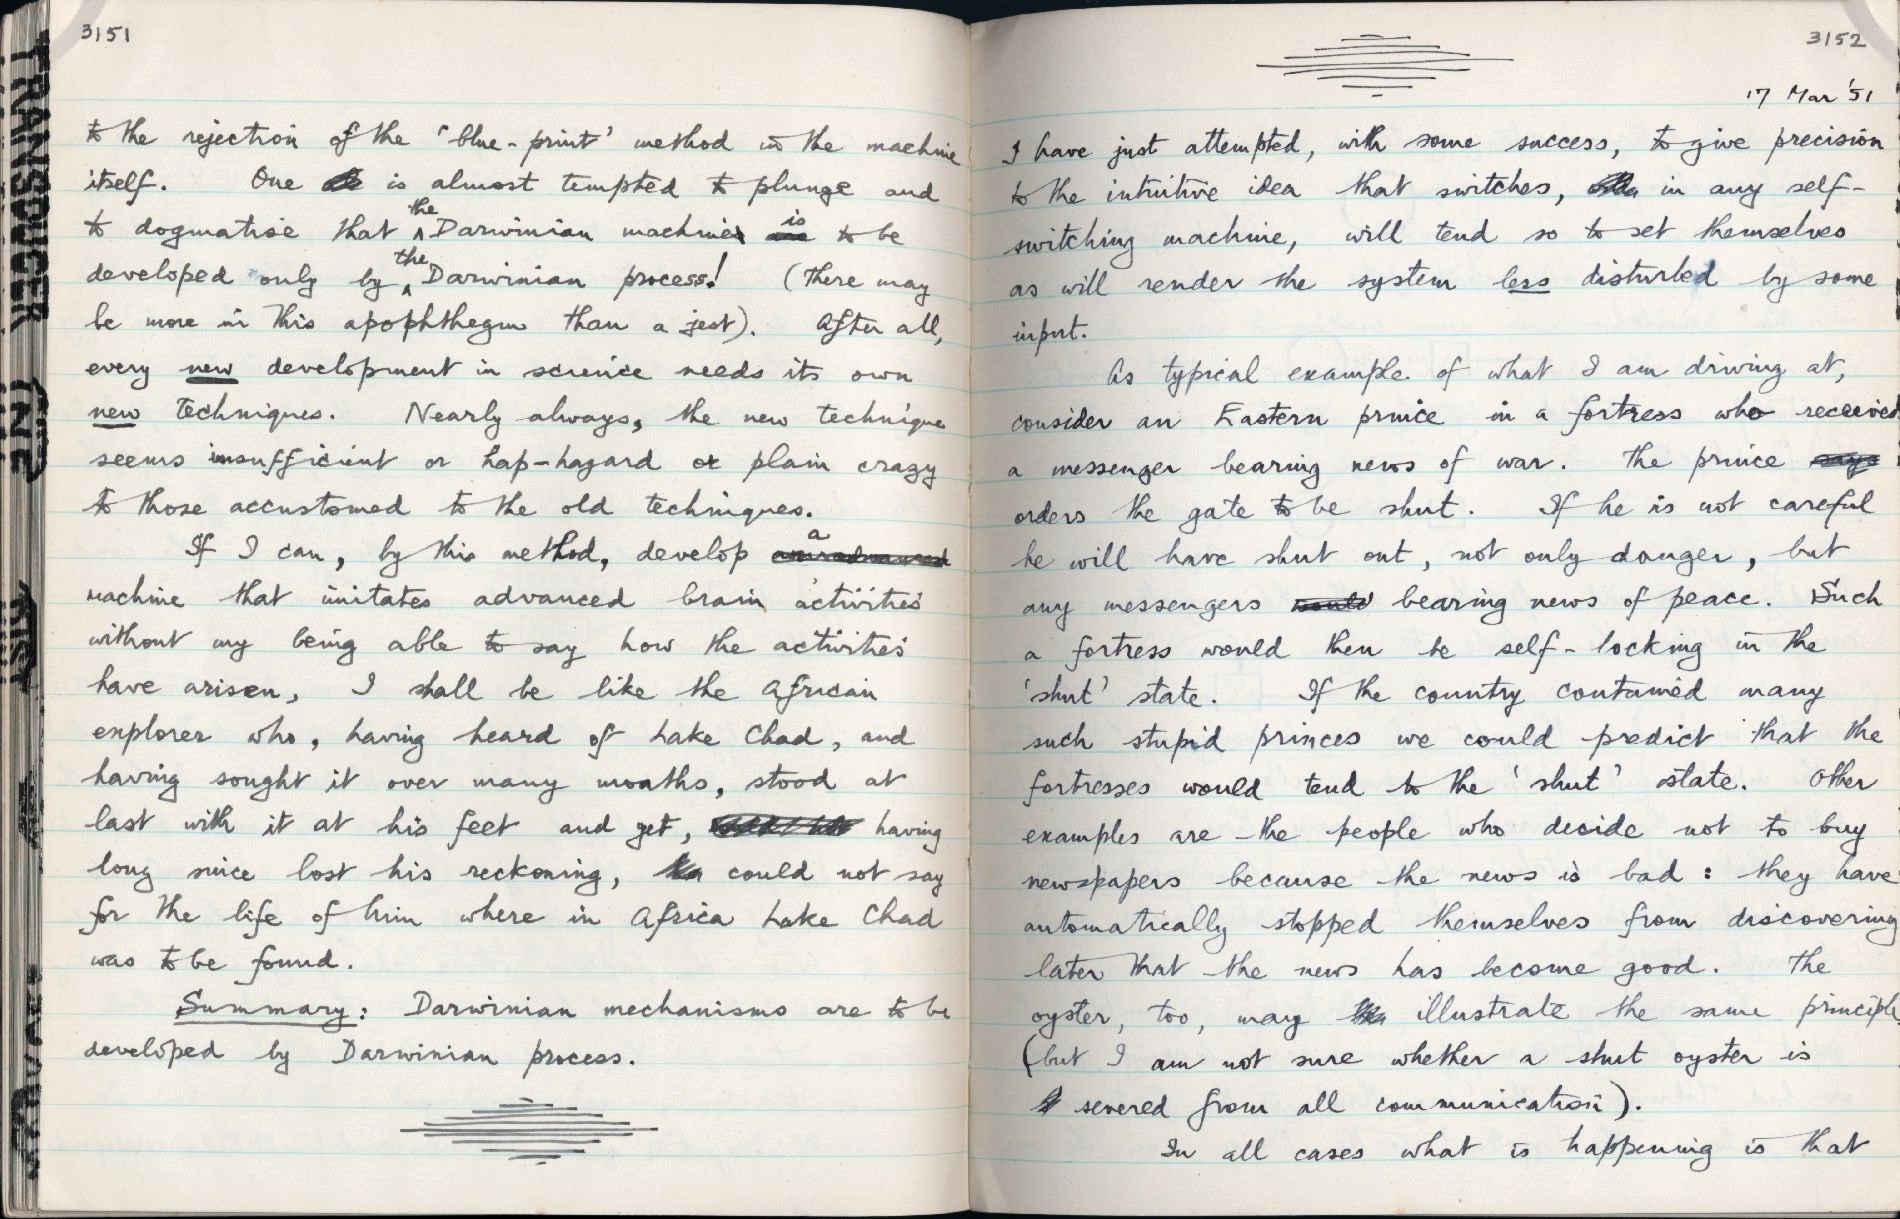 3151
to the rejection of the 'blue-print' method in the machine
itself. One is almost tempted to plunge and
to dogmatise that the Darwinian machine is to be
developed only by the Darwinian process! (There may
be more in this apophthegm than a jest). After all,
every new development in science needs its own
new techniques. Nearly always, the new technique
seems insufficient or hap-hazard or plain crazy
to those accustomed to the old techniques.
If I can, by this method, develop a
machine that imitates advanced brain activities
without my being able to say how the activities
have arisen, I shall be like the African
explorer who, having heard of Lake Chad, and
having sought it over many months, stood at
last with it at his feet and yet, having
long since lost his reckoning, could not say
for the life of him where in Africa Lake Chad
was to be found.
Summary: Darwinian mechanisms are to be
developed by Darwinian process.
3152
17 Mar '51
I have just attempted, with some success, to give precision
to the intuitive idea that switches, in any self-
switching machine, will tend so to set themselves
as will render the system less disturbed by some
input.
As typical example of what I am driving at,
consider an Eastern prince in a fortress who received
a messenger bearing news of war. The prince says
orders the gate to be shut. If he is not careful
he will have shut out, not only danger, but
any messengers would bearing news of peace. Such
a fortress would then be self-locking in the
'shut' state. If the country contained many
such stupid princes we could predict that the
fortresses would tend to the 'shut' state. Other
examples are the people who decide not to buy
newspapers because the news is bad: they have
automatically stopped themselves from discovering
later that the news has become good. The
oyster, too, may illustrate the same principle
(but I am not sure whether a shut oyster is
severed from all communication).
In all cases what is happening is that
TRANSDUCER